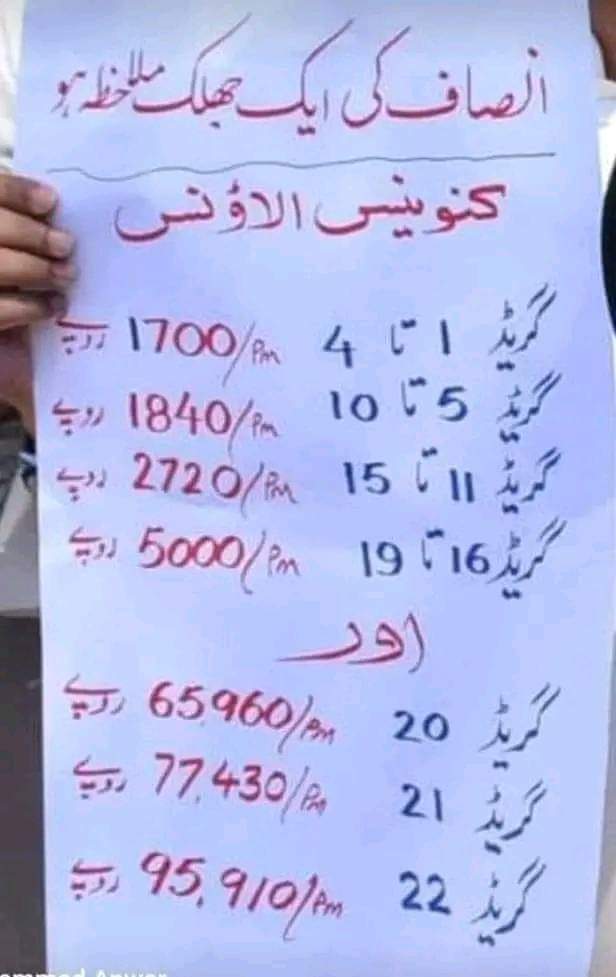 انصاف کی ایک جھلک ملاحظہ ہو
کنوینس الاؤنس
گریڈ 1 تا 4 1700/Pm روپے
گریڈ 5 تا 10 1840/Pm روپے
گریڈ 11 تا 15 2720/Pm روپے
گریڈ 16 تا 19 5000/Pm روپے
اور
گریڈ 20 65,960/Pm روپے
گریڈ 21 77,430/Pm روپے
گریڈ 22 95,910/Pm روپے